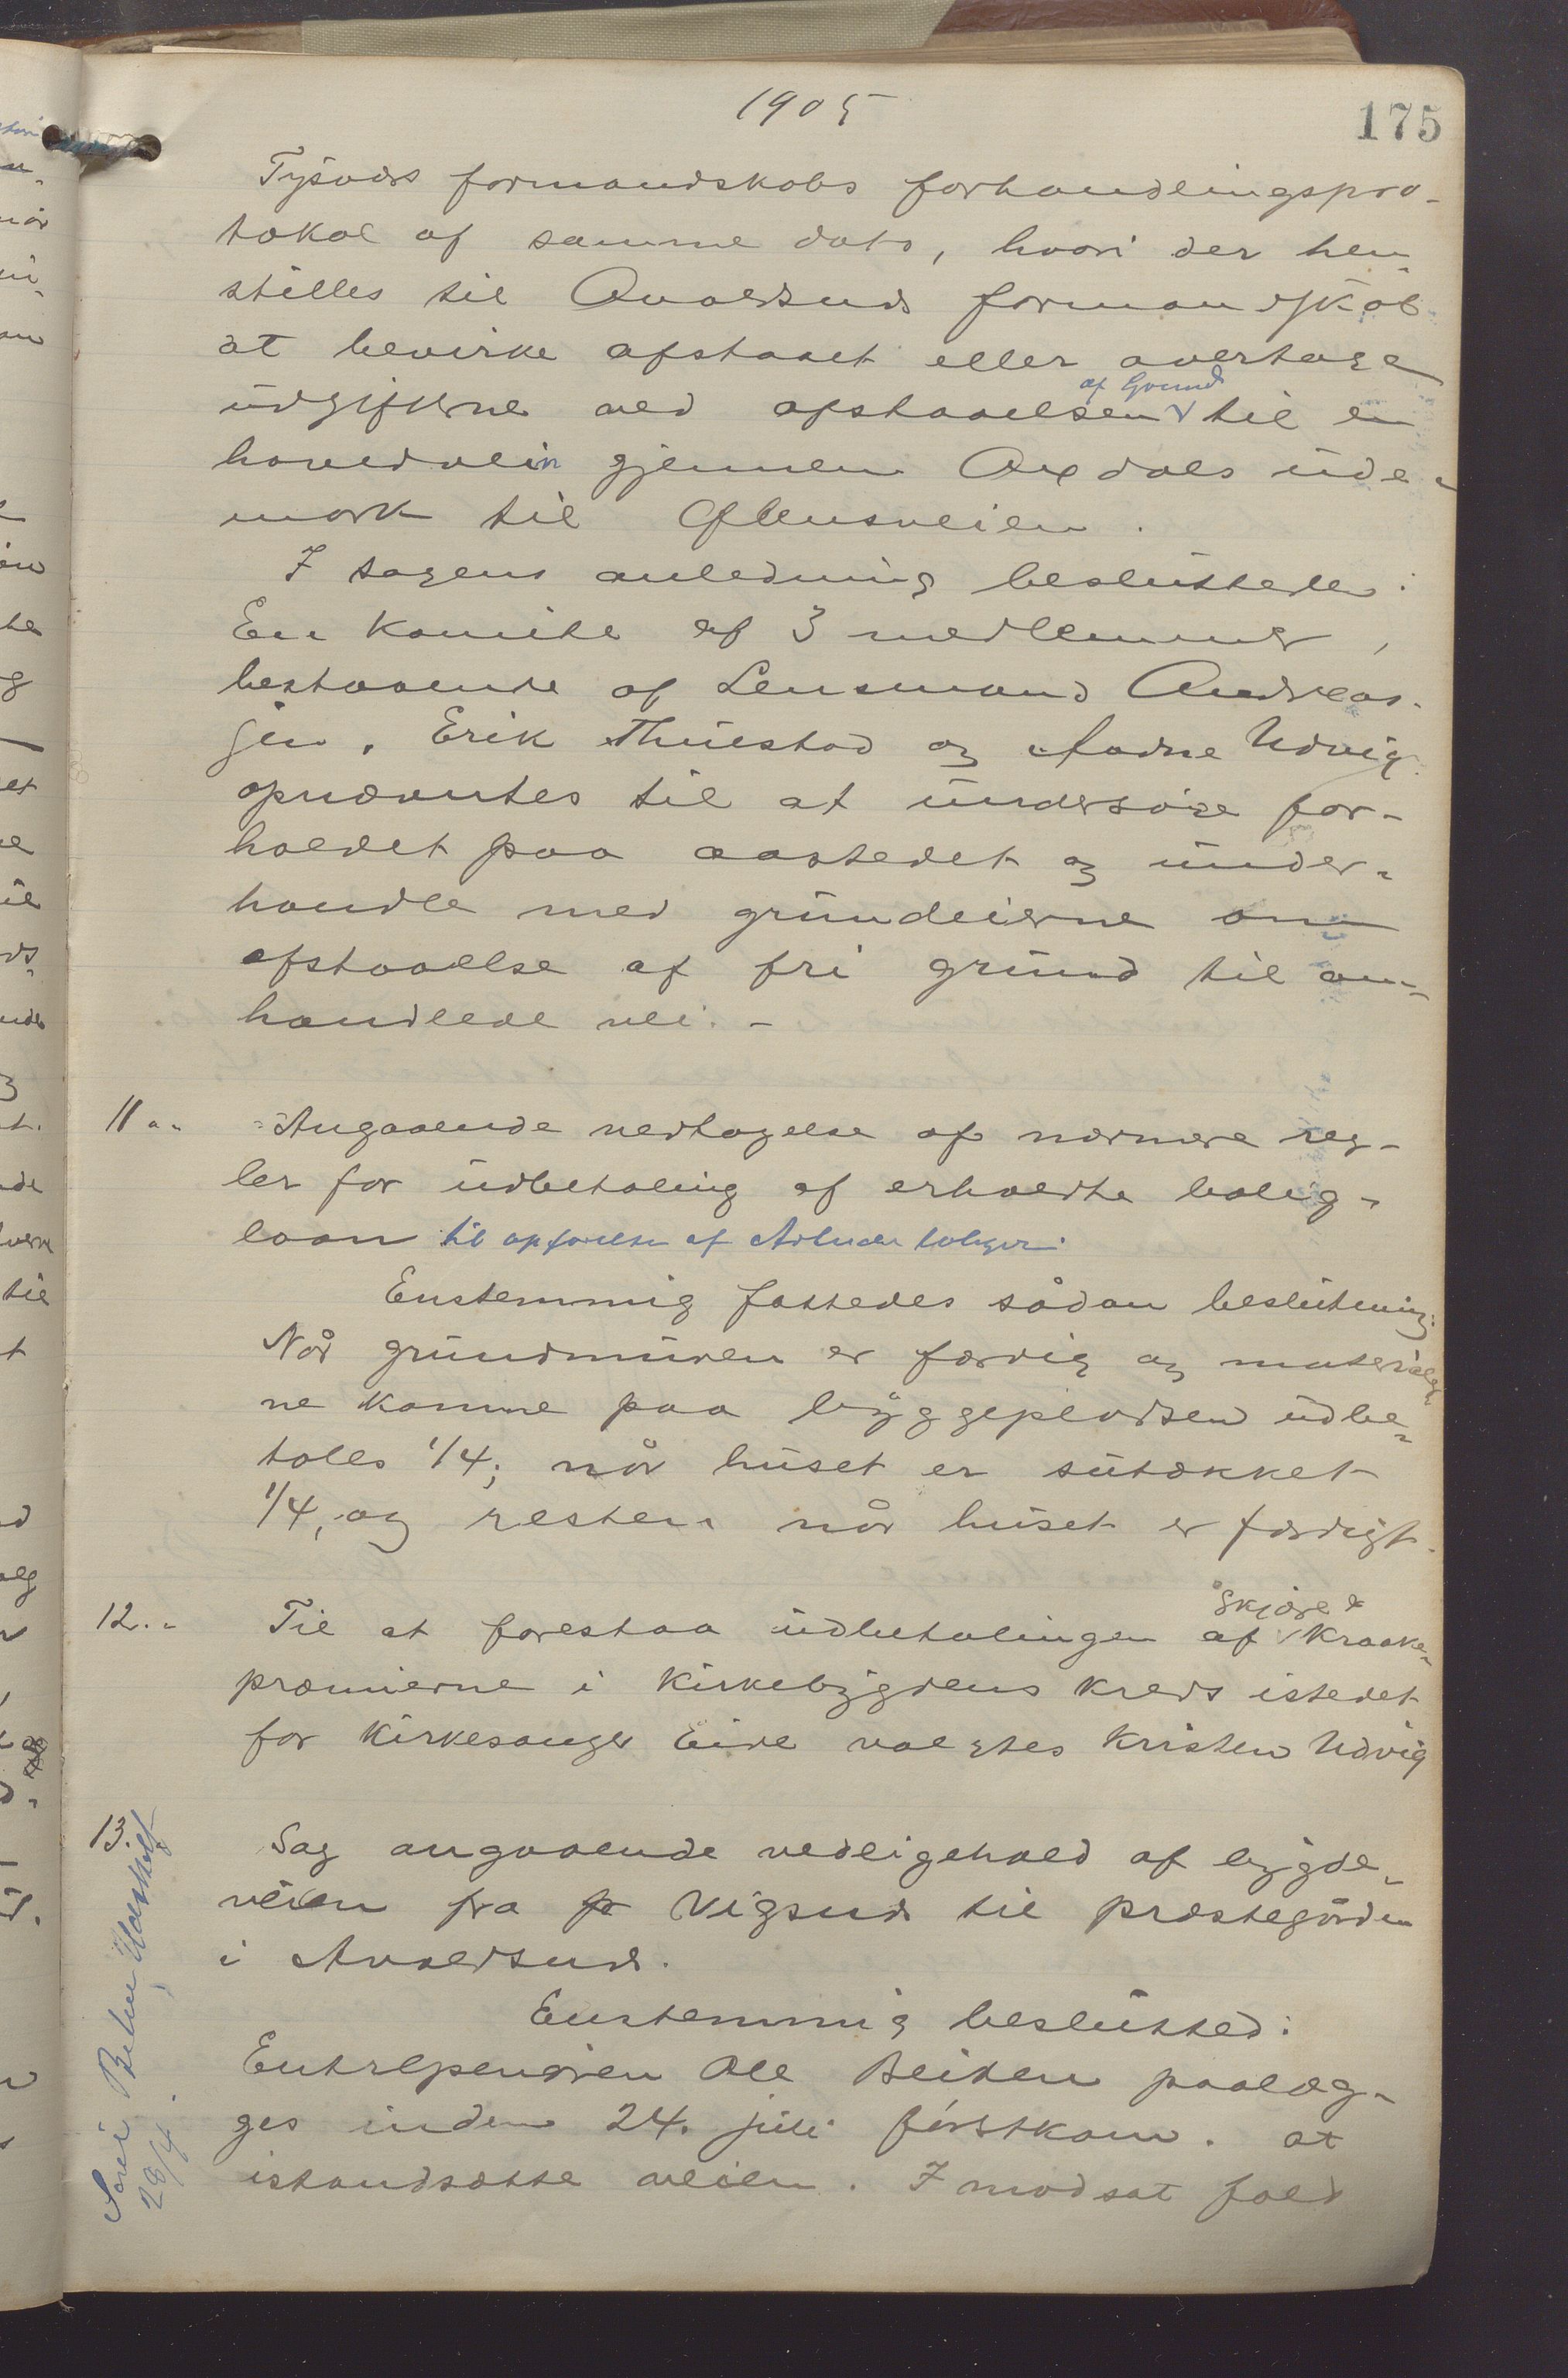 1905
175
Tysvær formandskabs forhandlingspro-
tokol af samme dato, hvori der hen-
stilles til Avaldsnes formandskab
at bevirke afstaaet eller overtage
udgifterne ved afstaaelsen af Grund til en
hovedvei gjennem Axdals ude-
mark til Aflensveien.
I sagens anledning besluttedes:
En komite af 3 medlemmer,
bestaaende af Lensmand Andreas-
sen, Erik Thuestad og Aadne Udvig
opnævntes til at undersöge for-
holdet paa aastedet og under-
handle med grundeierne om
afstaaelse af fri grund til om-
handlede vei. -
11.. Angaaende vedtagelse af nærmere reg-
ler for udbetaling af erholdte bolig-
laan til opførelse af Arbeider boliger.
Enstemmig fattedes sådan beslutning:
Når grundmuren er færdig og materialer
ne komne paa byggepladsen udbe-
tales 1/4; når huset er sutækket
1/4, og resten når huset er færdigt.
12.. Til at forestaa udbetalingen af Skjøre & Kraake-
præmierne i Kirkebygdens kreds istedet
for Kirkesanger Eide valgtes Kristen Udvig
13. Sag angaaende vedligehold af bygde-
veien fra Vigsnes til præstegården
i Avaldsnes.
Enstemmig beslutted:
Entreprenören Ole Reiten paalæg-
ges inden 24. juli förstkom. at
istandsætte veien. I modsat fald
28/4